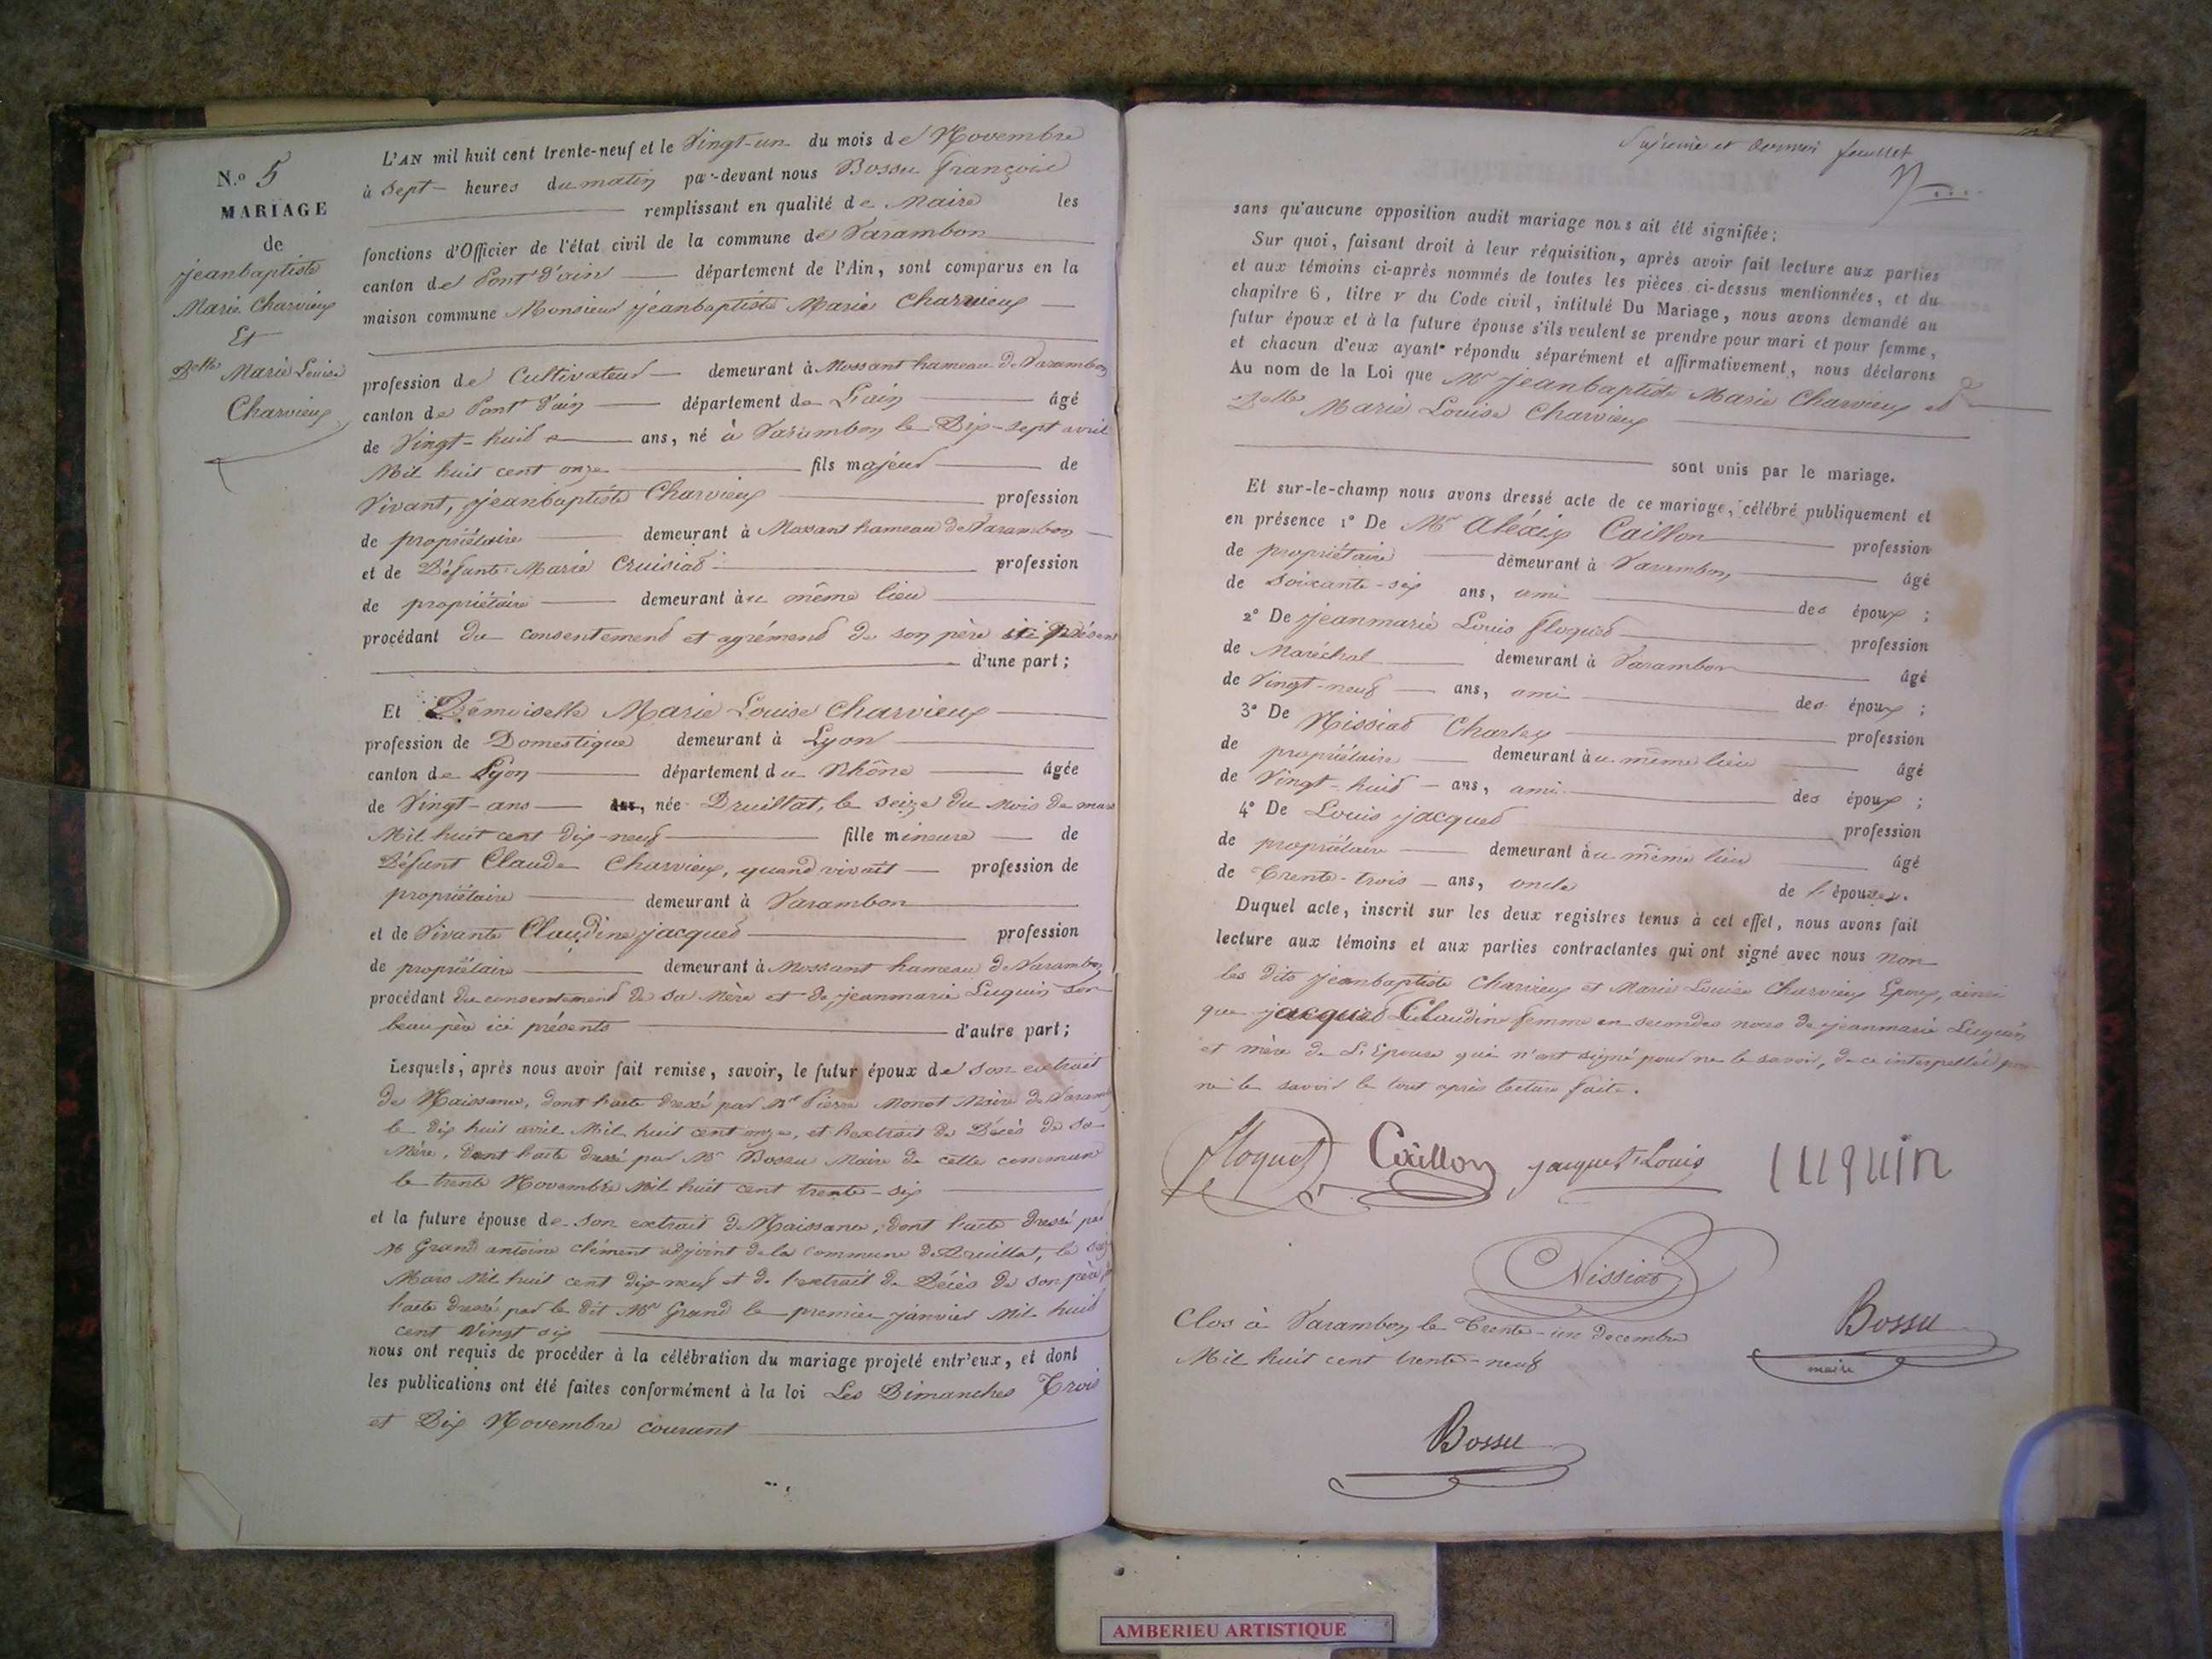 N.o 5
MARIAGE
de
jeanbaptiste
Marie Charvieux
Et
Delle Marie Louise
Charvieux
L'AN mil huit cent trente-neuf et le Vingt-un du mois de Novembre
à Sept heures du matin par-devant nous Bossu françois
remplissant en qualité de Maire les
fonctions d'Officier de l'état civil de la commune de Varambon
canton de Pont d'ain département de l'Ain, sont comparus en la
maison commune Monsieur jéanbaptiste Marie Charvieux
profession de Cultivateur demeurant à Mossant hameau de Varambon
canton de Pont d'ain département de L'ain âgé
de Vingt-huit ans, né à Varambon le Dix-sept avril
Mil huit cent onze fils majeur de
Vivant, jeanbaptiste Charvieux profession
de propriétaire demeurant à Mossant hameau de Varambon
et de Défunte Marie Cruisiat profession
de propriétaire demeurant au même lieu
procédant du consentement et agrément de son père ici présent
d'une part;
Et Démoiselle Marie Louise Charvieux
profession de Domestique demeurant à Lyon
canton de Lyon département du Rhône âgée
de Vingt-ans ans, née Druillat, le seize du mois de mars
Mil huit cent dix-neuf fille mineure de
Défunt Claude Charvieux, quand vivait profession de
propriétaire demeurant à Varambon
et de Vivante Claudine jacquet profession
de propriétaire demeurant à Mossant hameau de Varambon
procédant du consentement de sa Mère et de jeanmarie Luquin son
beau père ici présents d'autre part;
Lesquels, après nous avoir fait remise, savoir, le futur époux de son extrait
de Naissance, dont l'acte dressé par Mr Pierre Monet Maire de Varambon
le dix huit avril Mil huit cent onze, et l'extrait de Décès de sa
Mère, dont l'acte dressé par Mr Bossu Maire de cette commune
le trente Novembre Mil huit cent trente-six
et la future épouse de son extrait de Naissance, dont l'acte dressé par
Mr Grand antoine clément adjoint de la Commune de Druillat, le seize
Mars Mil huit cent dix-neuf et de l'extrait de Décès de son père
l'acte dressé par le dit Mr Grand le premier janvier Mil huit
cent Vingt six
nous ont requis de procéder à la célébration du mariage projeté entr'eux, et dont
les publications ont été faites conformément à la loi Les Dimanches Trois
et Dix Novembre courant
et dernier feuillet
sans qu'aucune opposition audit mariage nous ait été signifiée;
Sur quoi, faisant droit à leur réquisition, après avoir fait lecture aux parties
et aux témoins ci-après nommés de toutes les pièces ci-dessus mentionnées, et du
chapitre 6, titre v du Code civil, intitulé Du Mariage, nous avons demandé au
futur époux et à la future épouse s'ils veulent se prendre pour mari et pour femme,
et chacun d'eux ayant répondu séparément et affirmativement, nous déclarons
Au nom de la Loi que Mr jeanbaptiste Marie Charvieux et
Delle Marie Louise Charvieux
sont unis par le mariage.
Et sur-le-champ nous avons dressé acte de ce mariage, célébré publiquement et
en présence 1° De Mr Aléxis Caillon profession
de propriétaire demeurant à Varambon âgé
de soixante-six ans, ami des époux;
2° De jeanmarie Louis floquet profession
de Maréchal demeurant à Varambon âgé
de Vingt-neuf ans, ami des époux;
3° De Nissiat Charles profession
de propriétaire demeurant au même lieu âgé
de Vingt-huit ans, ami des époux;
4° De Louis jacquet profession
de propriétaire demeurant au même lieu âgé
de Trente-trois ans, oncle de l'épouse.
Duquel acte, inscrit sur les deux registres tenus à cet effet, nous avons fait
lecture aux témoins et aux parties contractantes qui ont signé avec nous non
les dits jeanbaptiste Charvieux et Marie Louise Charvieux Epoux, ainsi
que jacquet Claudine femme en secondes noces de jeanmarie Luquin
et mère de L'Epouse qui n'ont signé pour ne le savoir, de ce interpellés pour
ne le savoir le tout après lecture faite.
floquet Caillon jacquet Louis luquin
Nissiat
Clos à Varambon le Trente-un décembre
Mil huit cent trente-neuf
Bossu
maire
Bossu
AMBERIEU ARTISTIQUE